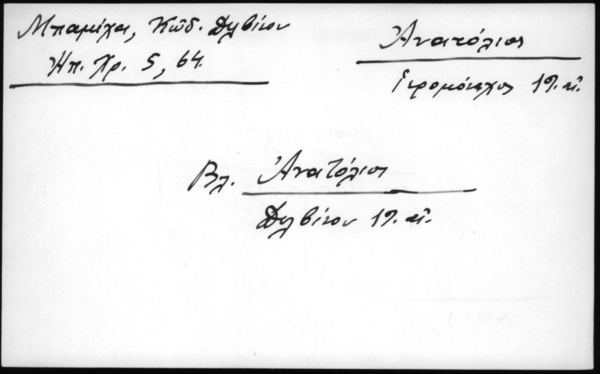 Μπαμίχα, Κώδ. Δελβίνου
Ἠπ. Χρ. 5, 64.
Ἀνατόλιος
Ἱερομόναχος 19. αἰ.
Βλ. Ἀνατόλιος
Δελβίνου 19. αἰ.